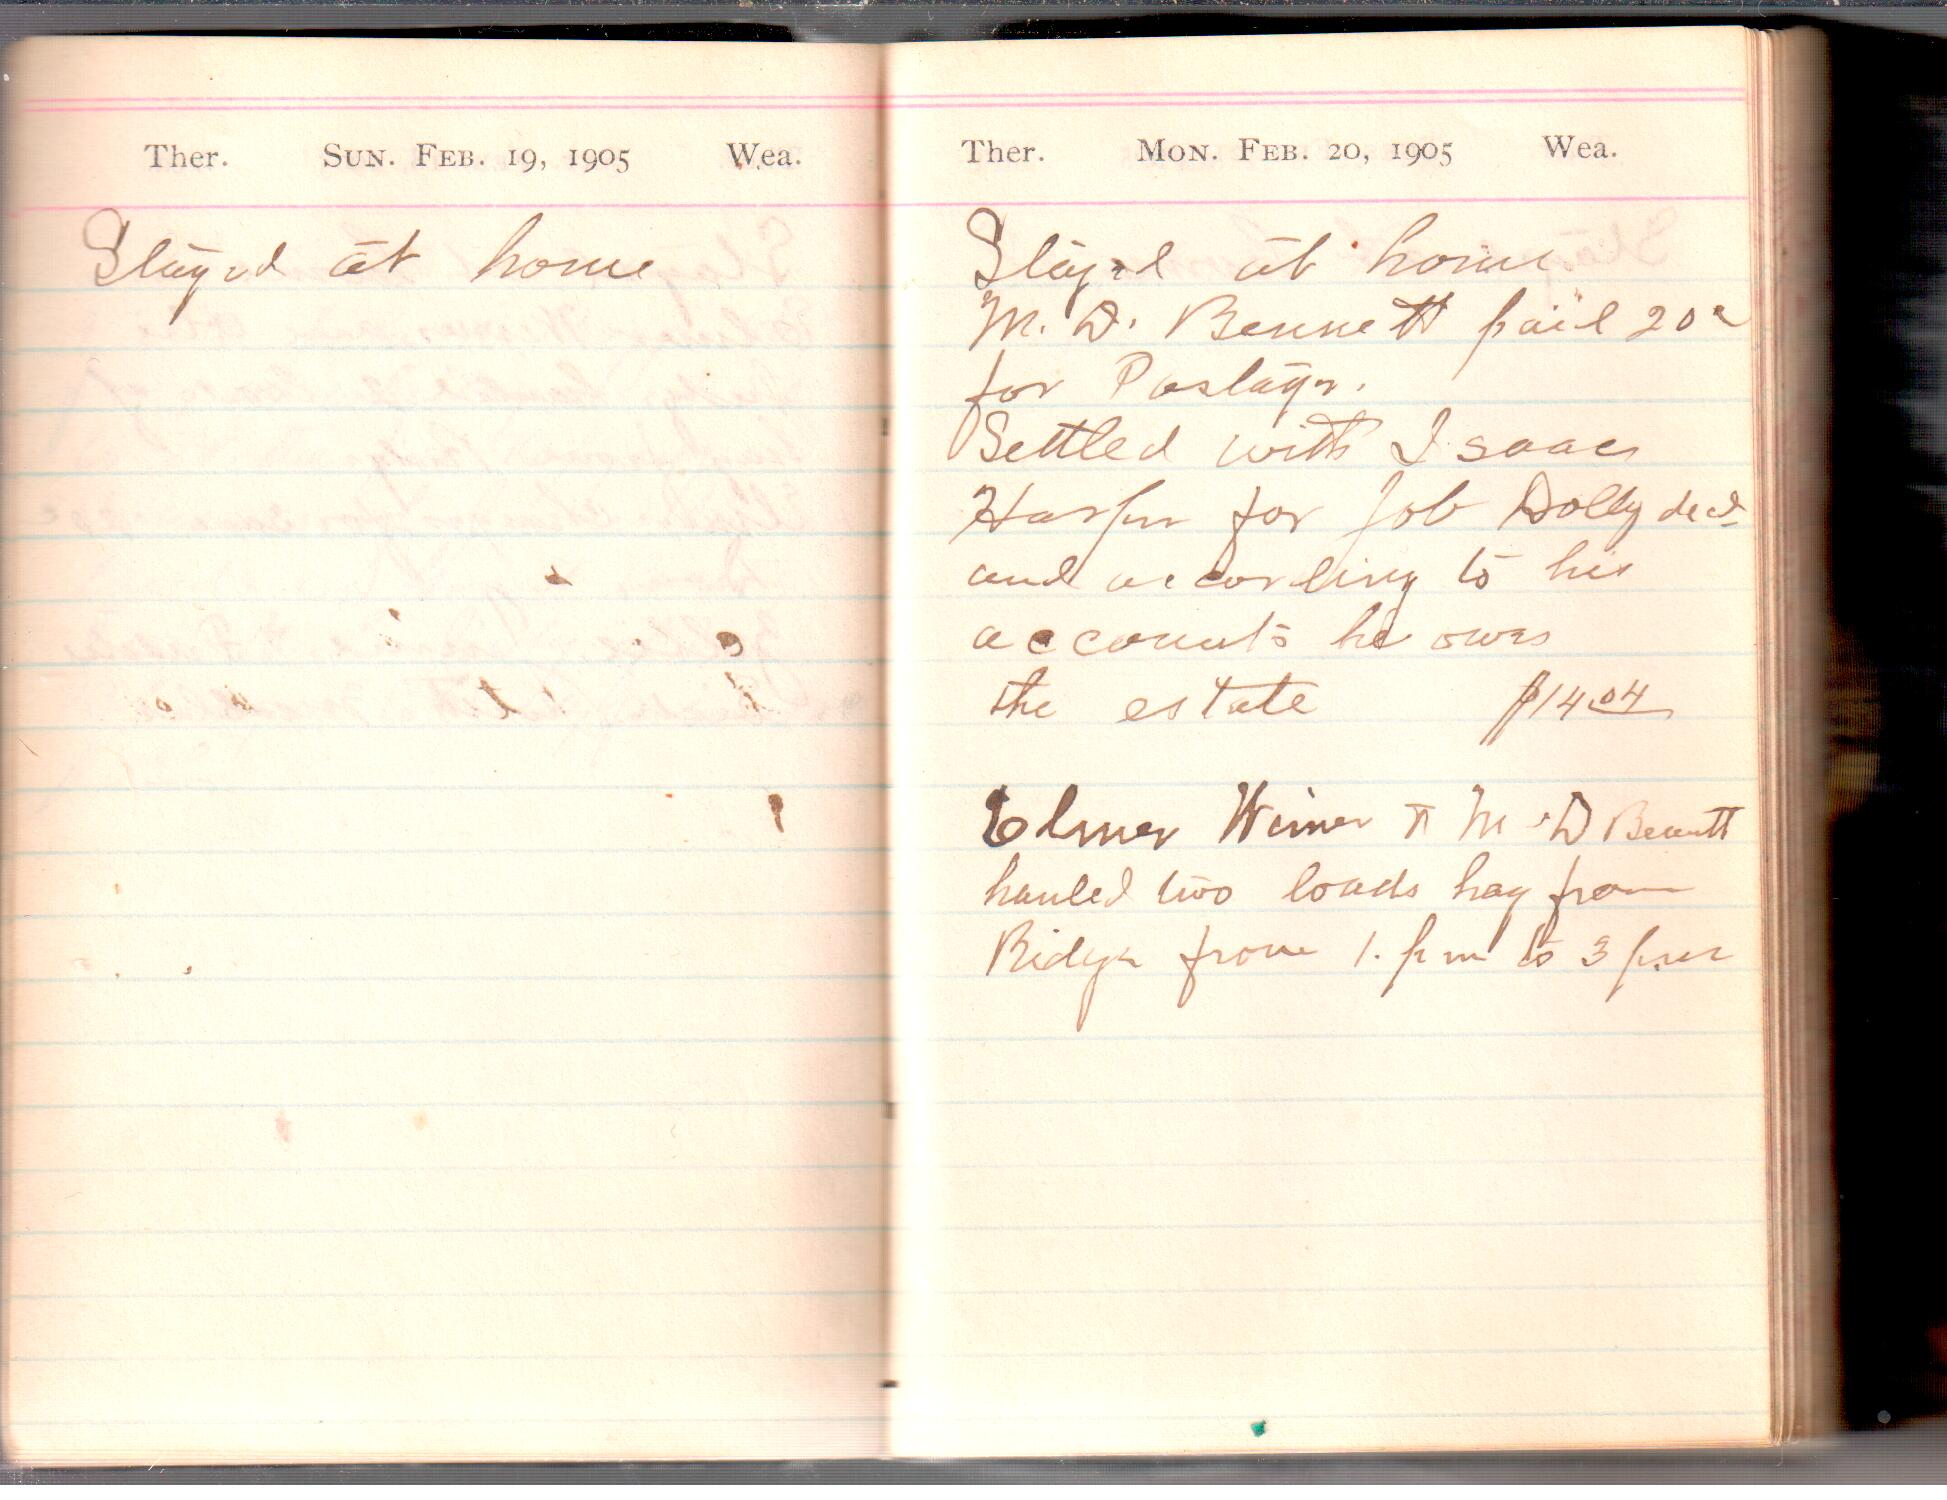 Ther. SUN. FEB. 19, 1905 Wea.
Stayed at home
Ther. MON. FEB. 20, 1905 Wea.
Stayed at home
M. D. Bennett paid 20c
for Postage.
Settled with Isaac
Harper for Job Dolly decd
and according to his
accounts he owes
the estate $14.04
Elmer Wimer & M. D Bennett
hauled two loads hay from
Ridge from 1. pm to 3 pm